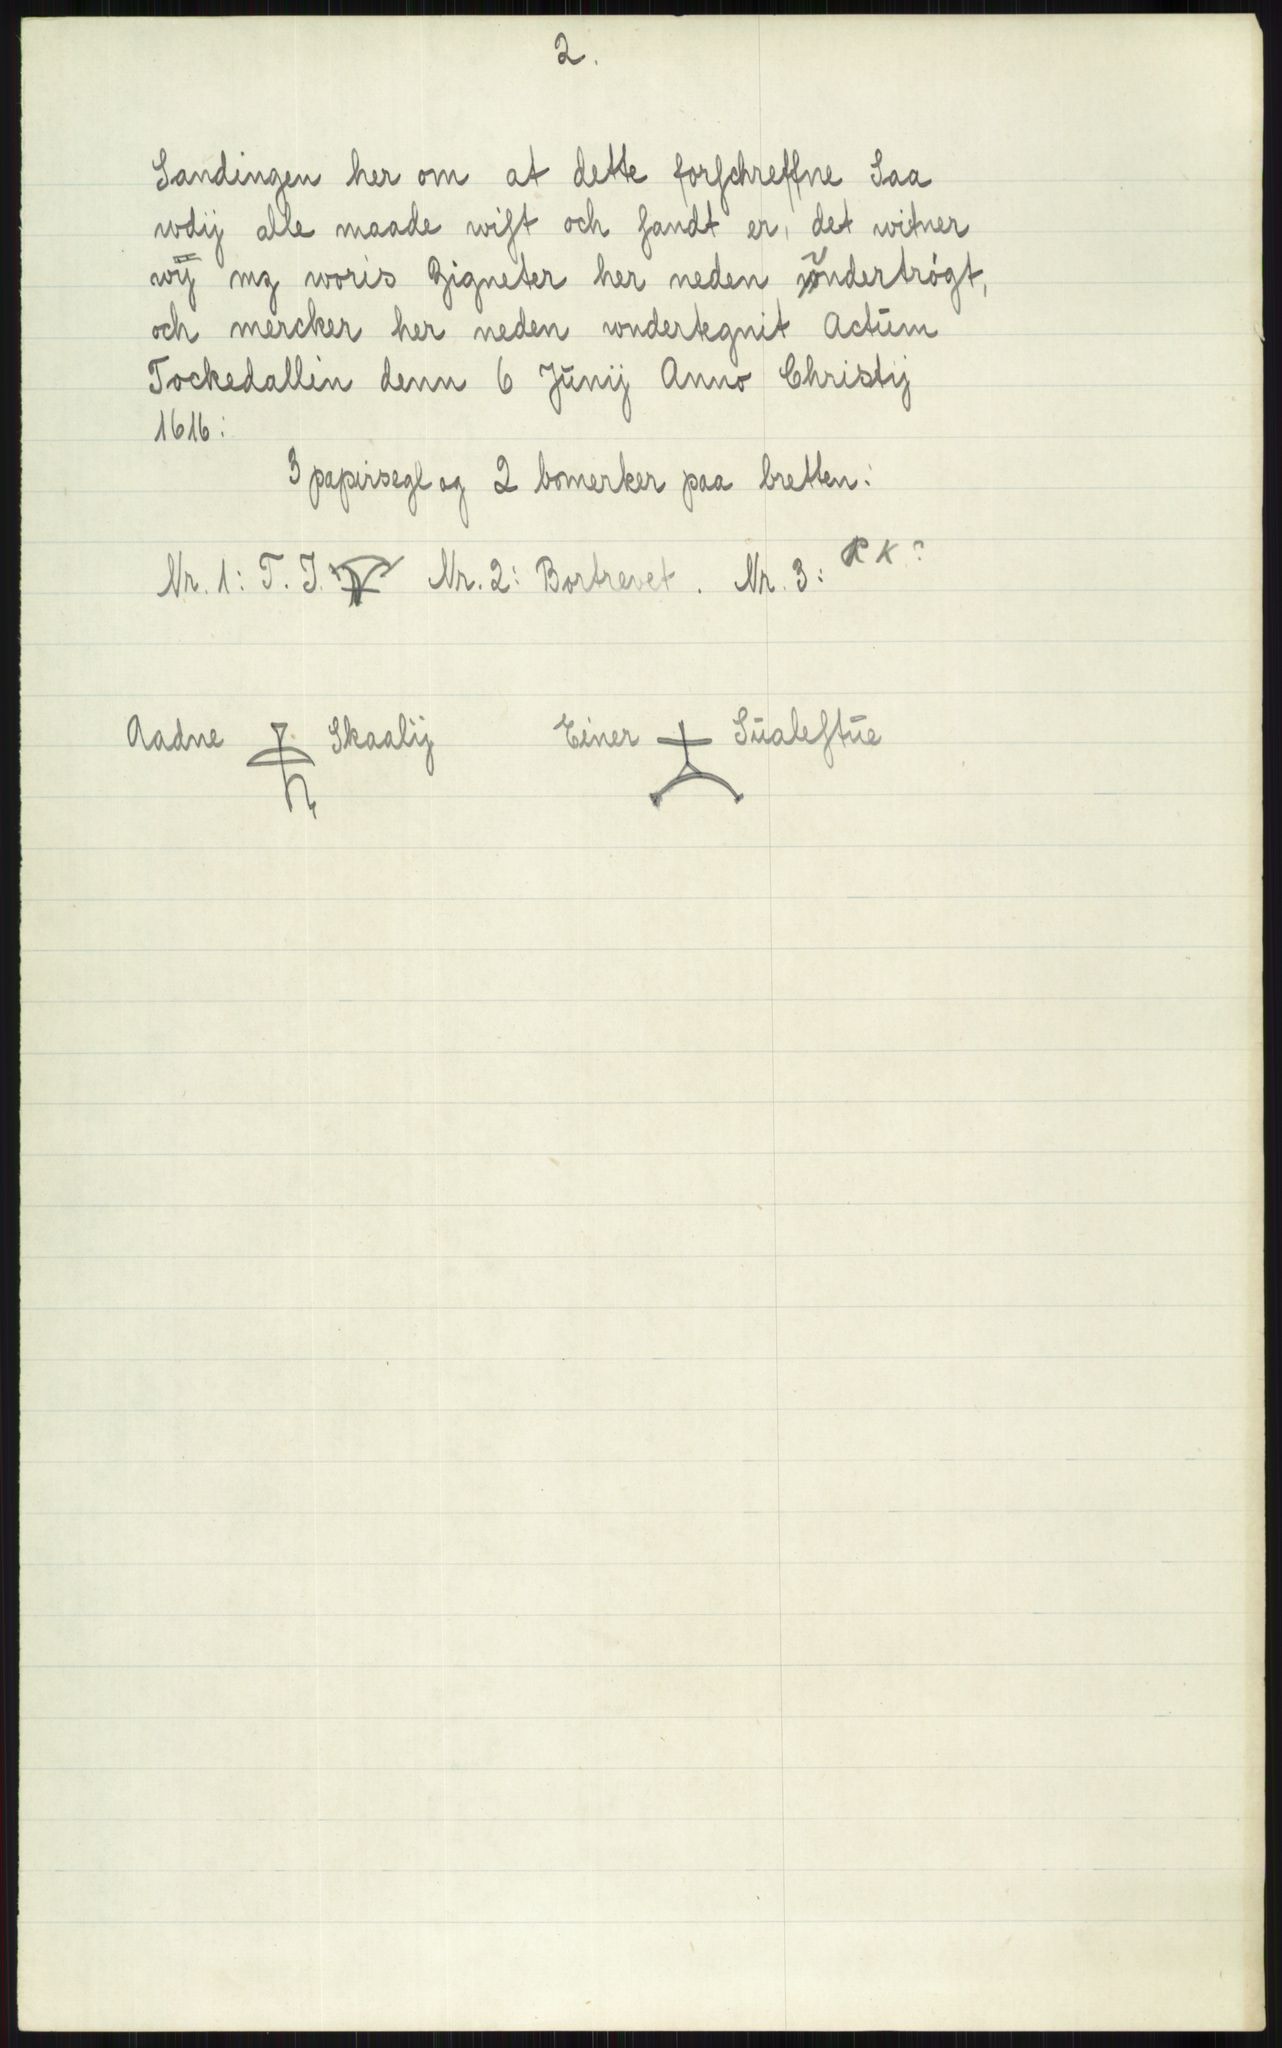 2.
Sandingen her om at dette forſchreffne Saa
wdij alle maade wiſt och ſandt er, det witner
wij mz woris Zigneter her neden wndertrögt,
och mercker her neden wndertegnit Actũm
Tockedallin denn 6 Jũnij Anno Christij
1616:
3 papirsegl og 2 bomerker paa bretten:
Nr. 1: T. J. Nr. 2: Bortrevet. Nr. 3: R K?
Aadne Skaalij Einer Sũaleſtũe